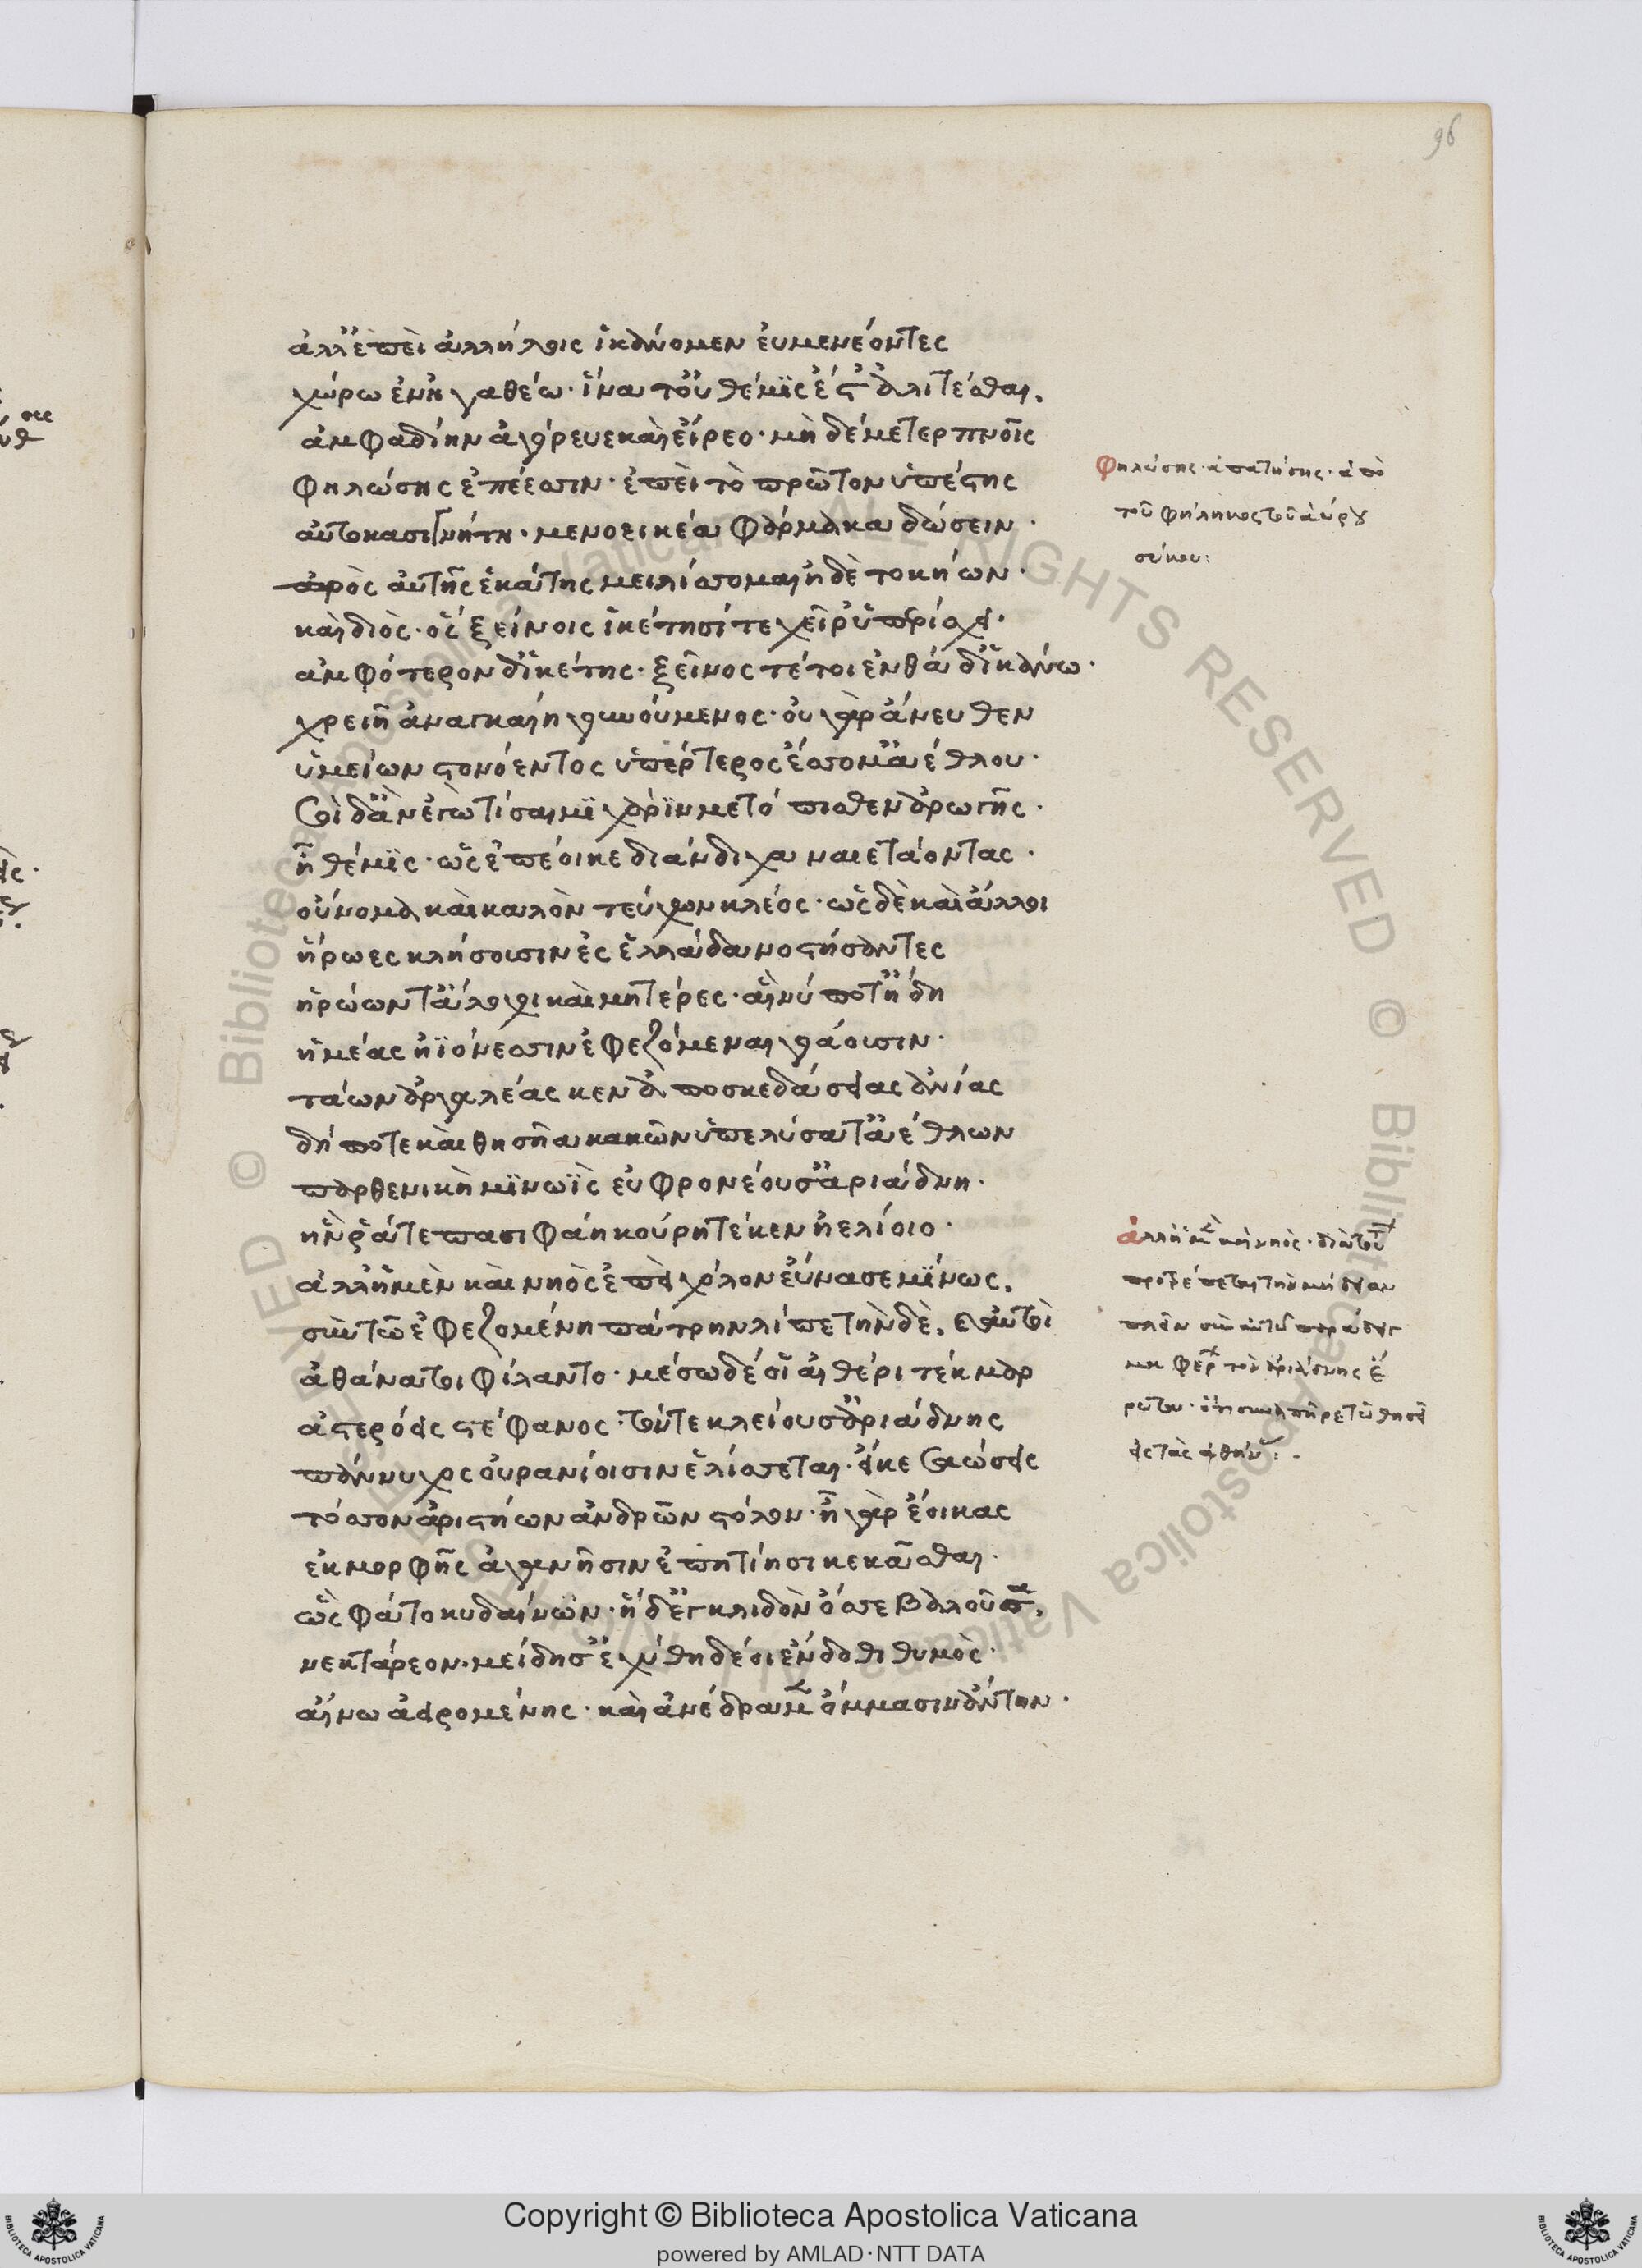 96
ἀλλ' ἐπεὶ ἀλλήλοις ἱκάνομεν εὐμενέοντες
χώρω ἐνὶ ἠγαθέω· ἵνα τ' οὐ θέμϊς ἔστ' ἀλιτέσθαι.
ἀμφαδίην ἀγόρευε καὶ εἴρεο· μὴ δέ με τερπνοῖς
φηλώσης ἐπέεσσιν· ἐπεὶ τὸ πρῶτον ὑπέστης
αὐτοκασιγνήτη· μενοεικέα φάρμακα δώσειν·
πρὸς αὐτῆς ἑκάτης μειλίσσομαι ἠδὲ τοκήων·
καὶ διὸς· ὃς ξείνοις ἱκέτησί τε χεῖρ' ὑπερίσχει·
ἀμφότερον δ' ἱκέτης· ξεῖνος τέ τοι ἐνθάδ' ἱκάνω·
χρειῆ ἀναγκαίη γουνούμενος· οὐ γὰρ ἄνευθεν
ὑμείων στονόεντος ὑπέρτερος ἔσσομ' ἀέθλου·
σοὶ δ' ἂν ἐγὼ τίσαιμϊ χάρϊν μετόπισθεν ἀρωγῆς·
ἣ θέμϊς· ὡς ἐπέοικε διάνδιχα ναιετάοντας·
οὔνομα καὶ καλὸν τεύχων κλέος· ὡς δὲ καὶ ἄλλοι
ἥρωες κλήσουσιν ἐς ἑλλάδα νοστήσαντες
ἡρώων τ' ἄλοχοι καὶ μητέρες· αἵ νύ ποτ' ἤδη
ἡμέας ἠϊόνεσσιν ἐφεζόμεναι γοάουσιν·
τάων ἀργαλέας κεν ἀποσκεδάσειας ἀνίας
δή ποτε καὶ θησῆα κακῶν ὑπελύσατ' ἀέθλων
παρθενικὴ μϊνωϊς εὐφρονέουσ' ἀριάδνη·
ἥν ῥά τε πασιφάη κούρη τέκεν ἠελίοιο·
ἀλλ' ἡ μὲν καὶ νηὸς ἐπεὶ χόλον εὔνασε μϊνως.
σὺν τῶ ἐφεζομένη πάτρην λίπε τὴν δὲ. καὶ αὐτοὶ
ἀθάνατοι φίλαντο· μέσω δέ οἱ αἰθέρι τέκμαρ
ἀστερόεις στέφανος· τόν τε κλείουσ' ἀριάδνης
πάννυχος οὐρανίοισιν ἑλίσσεται· εἴ κε σαώσεις
τόσσον ἀριστήων ἀνδρῶν στόλον· ἦ γὰρ ἔοικας
ἐκ μορφῆς ἀγανῆσιν ἐπητίησι κεκάσθαι·
ὣς φάτο κυδαίνων· ἡ δ' ἐγκλιδὸν ὄσσε βαλοῦσα.
νεκτάρεον· μείδησ' ἐχύθη δέ οἱ ἔνδοθι θυμὸς·
αἴνω ἀειρομένης· καὶ ἀνέδραμεν ὄμμασιν ἄντην·
φηλώσης· ἀπατήσης· ἀπὸ
τοῦ φήληκος τοῦ ἀώρου
σύκου:
ἀλλ' ἡ μὲν καὶ νηὸς· διὰ τού
προτρέπεται τὴν μήδειαν
πλεῖν σὺν αὐτῶ
τὸν ἀριάδνης ἔ
ρωτα·
εἰς τὰς ἀθήνας:
Copyright © Biblioteca Apostolica Vaticana
powered by AMLAD·NTT DATA